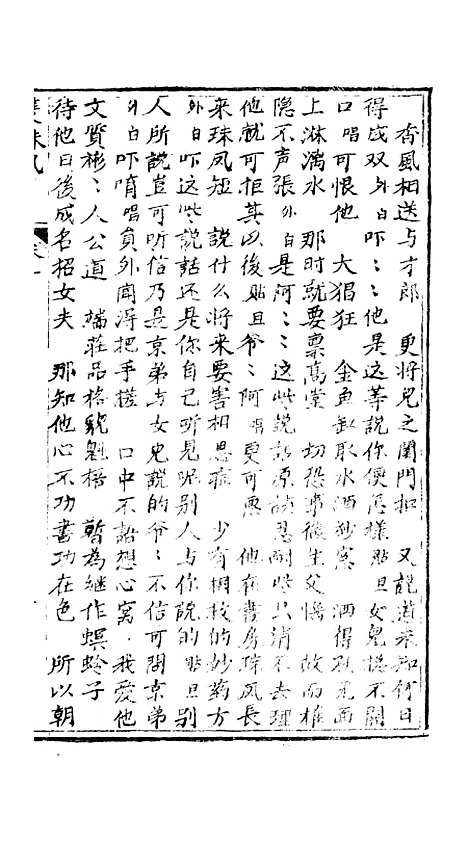 香風相送与才郎　更將兒之闺門扣　又說道未知何日
得成双外白吓〻〻他是这等說你便怎樣貼旦女兒總不開
口唱可恨他　大猖狂　金魚缸取水洒紗窓　洒得衣
上淋漓水　那时就要禀高堂　切恐事後生父惱　故而
隐不声張外白是阿〻〻这些説話原該忍耐些只消不去理
他就可拒其以後貼旦爷〻阿唱更可悪　他在書房珠凤長
来珠凤短　說什么将来要害相思症　少有相救的妙药方
外白吓这些説話还是你自己听見呢别人与你說的貼旦别
人所說豈可听信乃是京弟与女兒說的爷〻不信可問京弟
外白吓唷唱員外聞淂把手搓　口中不語想心窝　我爱他
文質彬〻人公道　端荘品格貌魁梧　暫為継作螟蛉子
待他日後成名招女夫　那知他心不功書功在色　所以朝
珠凤